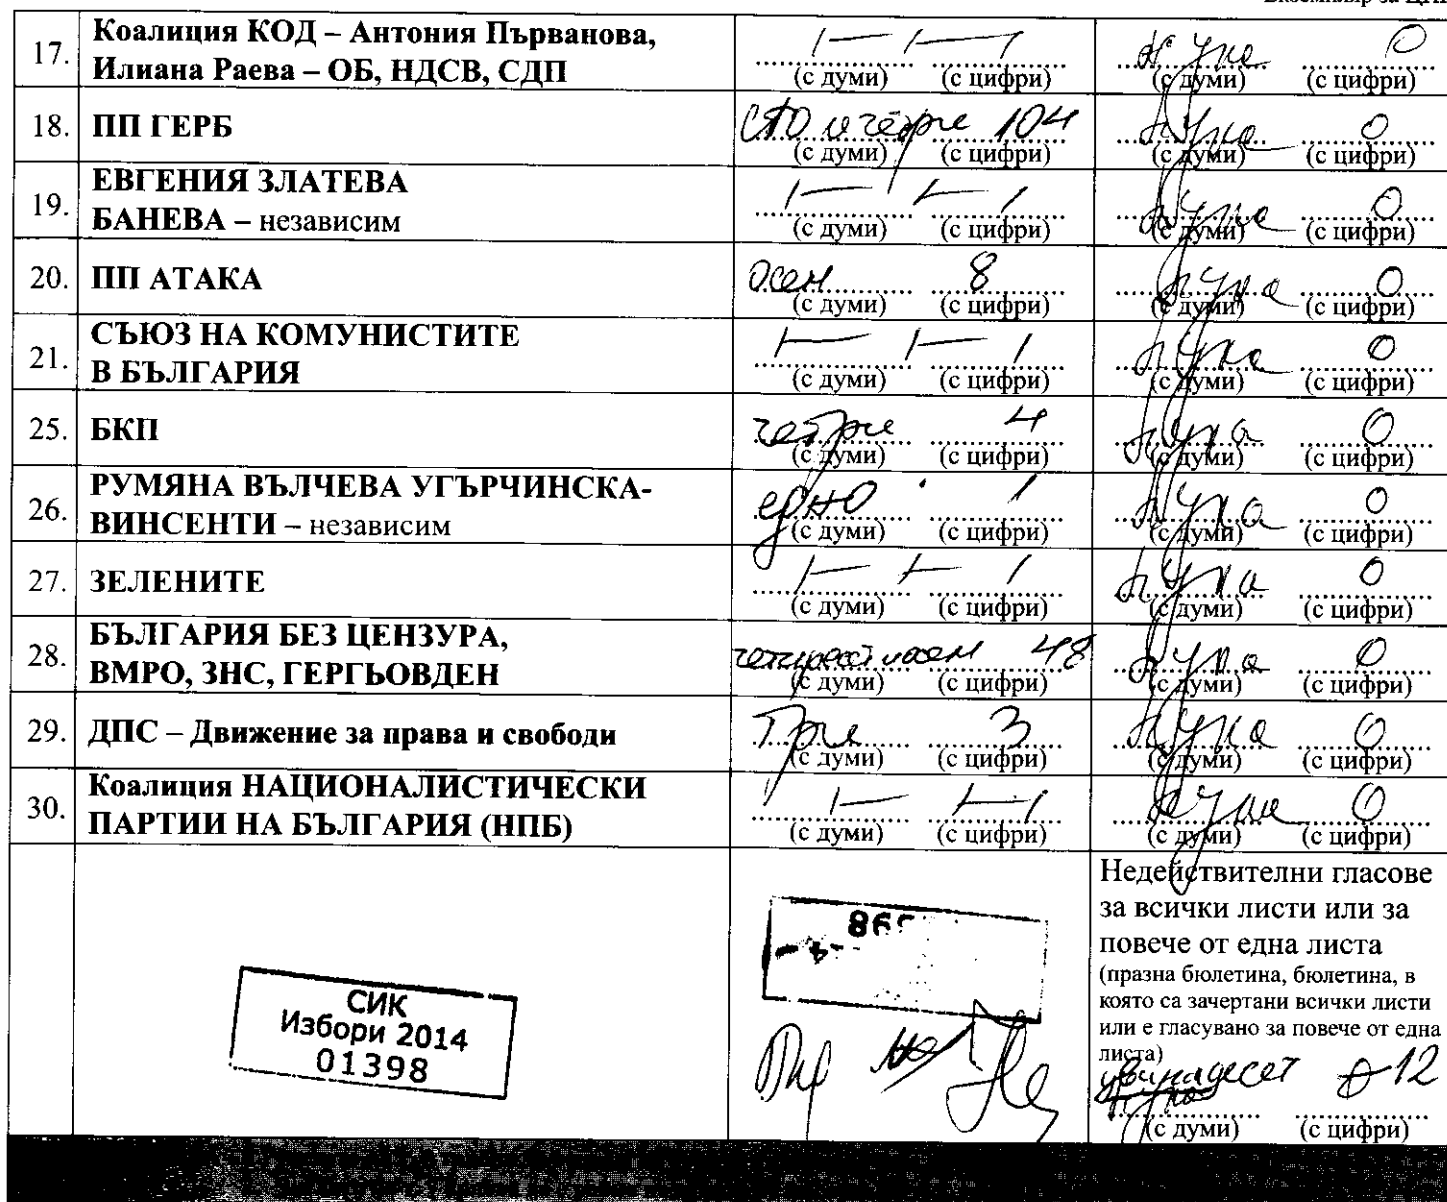 17. Коалиция КОД – Антония Първанова,
Илиана Раева – ОБ, НДСВ, СДП
(с думи) (с цифри)
нула 0
(с думи) (с цифри)
18. ПП ГЕРБ
сто и четри 104
(с думи) (с цифри)
нула 0
(с думи) (с цифри)
19. ЕВГЕНИЯ ЗЛАТЕВА
БАНЕВА – независим
(с думи) (с цифри)
нула 0
(с думи) (с цифри)
20. ПП АТАКА
осем 8
(с думи) (с цифри)
нула 0
(с думи) (с цифри)
21. СЪЮЗ НА КОМУНИСТИТЕ
В БЪЛГАРИЯ
(с думи) (с цифри)
нула 0
(с думи) (с цифри)
25. БКП
четри 4
(с думи) (с цифри)
нула 0
(с думи) (с цифри)
26. РУМЯНА ВЪЛЧЕВА УГЪРЧИНСКА-
ВИНСЕНТИ – независим
едно 1
(с думи) (с цифри)
нула 0
(с думи) (с цифри)
27. ЗЕЛЕНИТЕ
(с думи) (с цифри)
нула 0
(с думи) (с цифри)
28. БЪЛГАРИЯ БЕЗ ЦЕНЗУРА,
ВМРО, ЗНС, ГЕРГЬОВДЕН
48
(с думи) (с цифри)
нула 0
(с думи) (с цифри)
29. ДПС – Движение за права и свободи
Три 3
(с думи) (с цифри)
нула 0
(с думи) (с цифри)
30. Коалиция НАЦИОНАЛИСТИЧЕСКИ
ПАРТИИ НА БЪЛГАРИЯ (НПБ)
(с думи) (с цифри)
нула 0
(с думи) (с цифри)
СИК
Избори 2014
01398
Недействителни гласове
за всички листи или за
повече от една листа
(празна бюлетина, бюлетина, в
която са зачертани всички листи
или е гласувано за повече от една
листа)
12
(с думи) (с цифри)